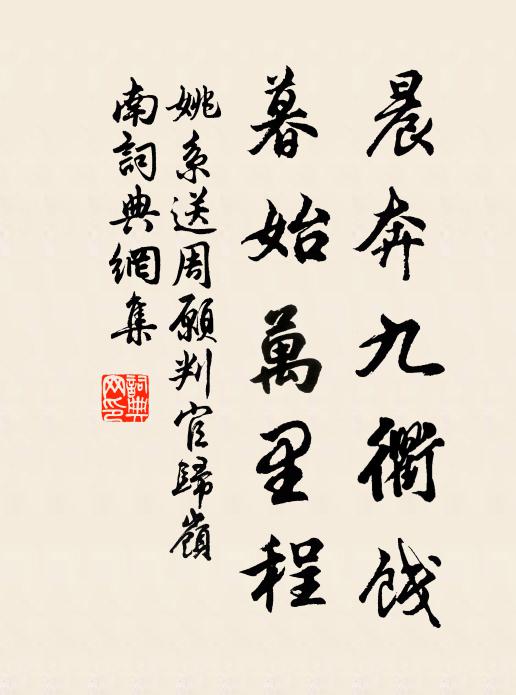 晨奔九衢餞
暮始萬里程
姚系送周願判官歸嶺
南詞典網集
詞典網印